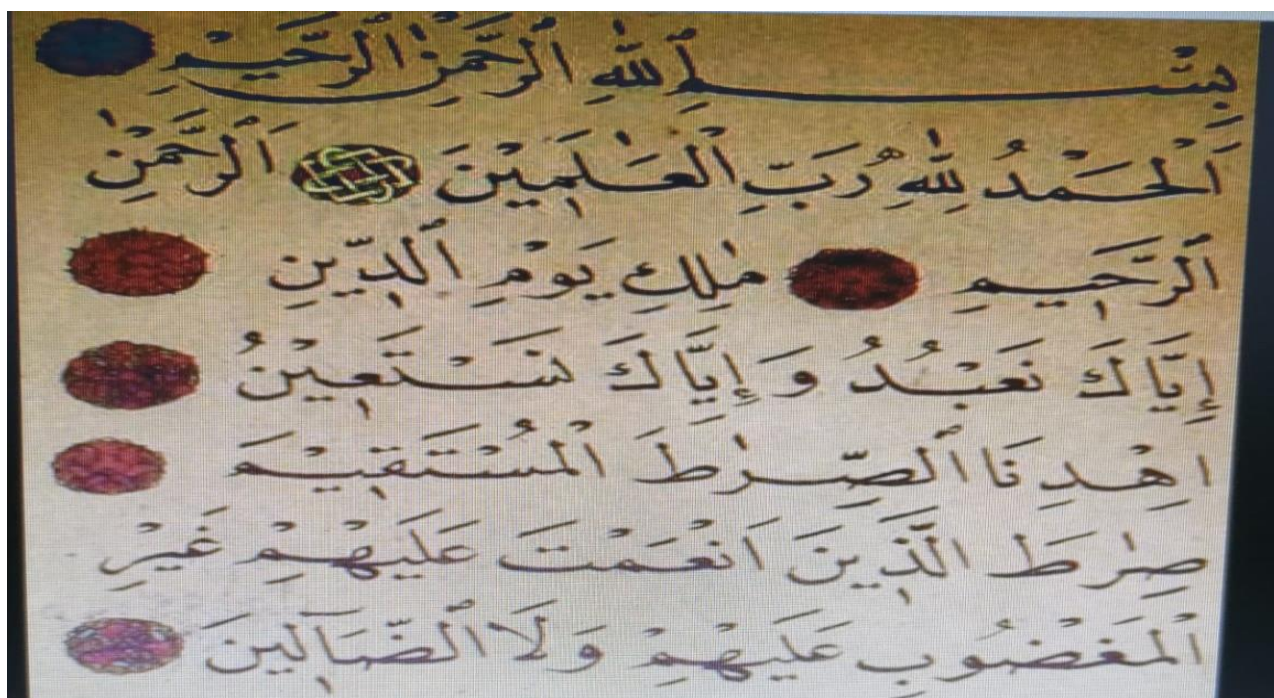 بِسْمِ ٱللَّهِ ٱلرَّحْمٰنِ ٱلرَّحِيْمِ
اَلْحَمْدُ لِلّٰهِ رَبِّ ٱلْعٰلَمِيْنَ اَلرَّحْمٰنِ
ٱلرَّحِيْمِ مٰلِكِ يَوْمِ ٱلدِّيْنِ
إِيَّاكَ نَعْبُدُ وَإِيَّاكَ نَسْتَعِيْنُ
اِهْدِنَا ٱلصِّرٰطَ ٱلْمُسْتَقِيْمَ
صِرٰطَ الَّذِيْنَ اَنْعَمْتَ عَلَيْهِمْ غَيْرِ
ٱلْمَغْضُوبِ عَلَيْهِمْ وَلَا ٱلضَّآلِّيْنَ